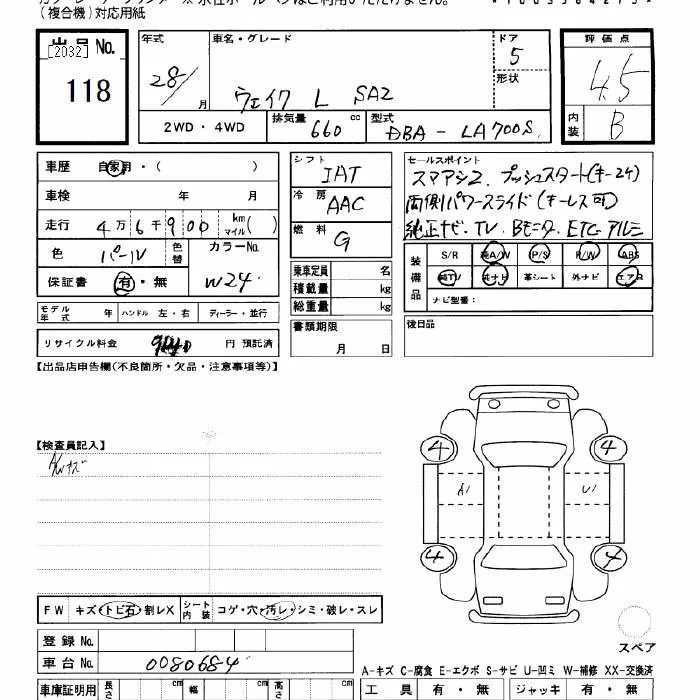 (複合機)対応用紙
出品No.
[2032]
118
年式 28/ 月
車名・グレード ウェイク L SA2
ドア 5
形状
評価点 4.5
内装 B
2WD・4WD
排気量 660 cc
型式 DBA - LA700S
車歴 自家用・( )
車検 年 月
走行 4万6千900 km マイル( )
色 パール 色替 カラーNo. W24
保証書 有・無
モデル年式 年 ハンドル 左・右 ディーラー・並行
リサイクル料金 円 預託済
シフト IAT
冷房 AAC
燃料 G
乗車定員 名
積載量 kg
総重量 kg
書類期限
月 日
セールスポイント
スマアシ2. プッシュスタート(キー2ケ)
両側パワースライド(キーレス可)
純正ナビ.TV.Bモニタ.ETC.アルミ
装備品 S/R 純A/W P/S P/W ABS
純TV 純ナビ 革シート 外ナビ エアB
ナビ型番:
後日品
【出品店申告欄(不良箇所・欠品・注意事項等)】
【検査員記入】
AWキズ
4 4
4 4
FW キズ・トビ石・割レX シート内装 コゲ・穴・汚レ・シミ・破レ・スレ
登録No.
車台No. 0080684
車庫証明用 長さ cm 幅 cm 高さ cm
スペア
A-キズ C-腐食 E-エクボ S-サビ U-凹ミ W-補修 XX-交換済
工具 有・無 ジャッキ 有・無